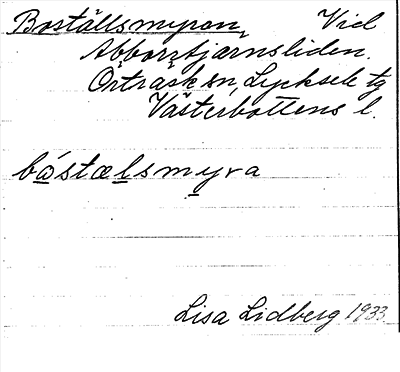 Boställsmyran, Vid
Abborrtjärnsliden.
Örträsk sn, Lycksele tg
Västerbottens l.
bǻstælsmyra
Lisa Lidberg 1933.